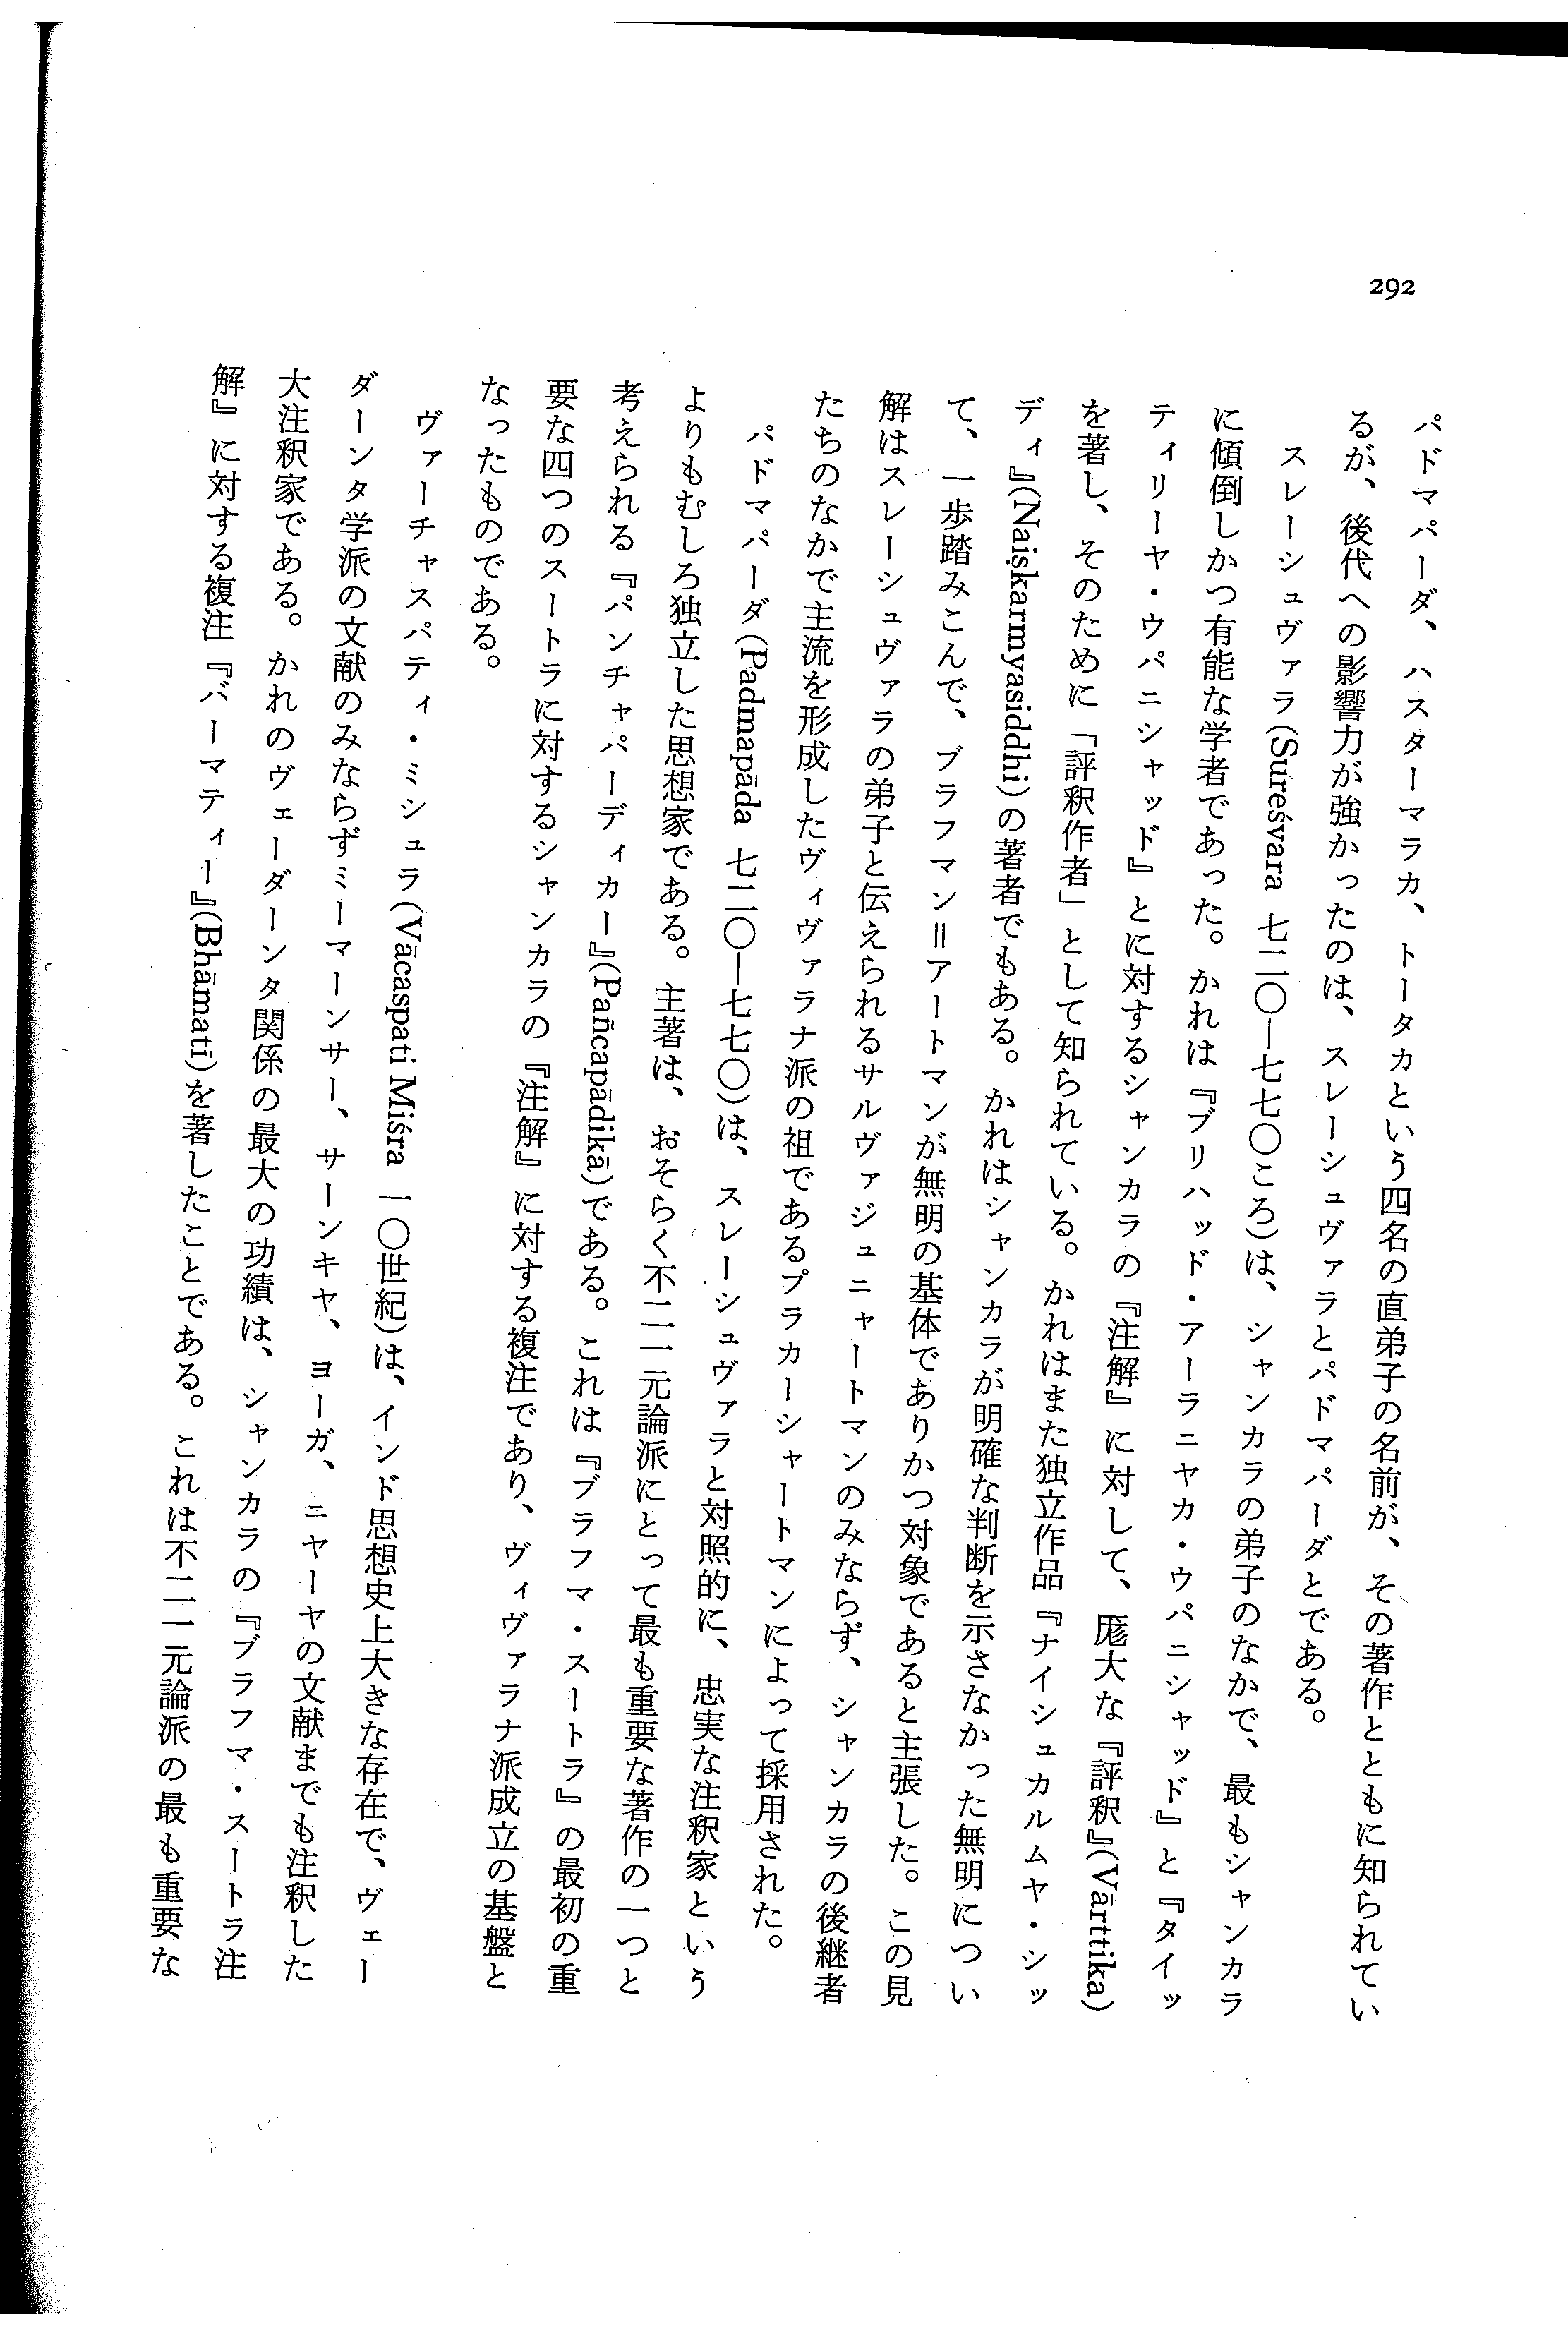 292
パドマパーダ、ハスターマラカ、トータカという四名の直弟子の名前が、その著作とともに知られてい
るが、後代への影響力が強かったのは、スレーシュヴァラとパドマパーダとである。
スレーシュヴァラ(Sureśvara 七二〇—七七〇ころ)は、シャンカラの弟子のなかで、最もシャンカラ
に傾倒しかつ有能な学者であった。かれは『ブリハッド・アーラニヤカ・ウパニシャッド』と『タイッ
ティリーヤ・ウパニシャッド』とに対するシャンカラの『注解』に対して、厖大な『評釈』(Vārttika)
を著し、そのために「評釈作者」として知られている。かれはまた独立作品『ナイシュカルムヤ・シッ
ディ』(Naiṣkarmyasiddhi)の著者でもある。かれはシャンカラが明確な判断を示さなかった無明につい
て、一歩踏みこんで、ブラフマン＝アートマンが無明の基体でありかつ対象であると主張した。この見
解はスレーシュヴァラの弟子と伝えられるサルヴァジュニャートマンのみならず、シャンカラの後継者
たちのなかで主流を形成したヴィヴァラナ派の祖であるプラカーシャートマンによって採用された。
パドマパーダ(Padmapāda 七二〇—七七〇)は、スレーシュヴァラと対照的に、忠実な注釈家という
よりもむしろ独立した思想家である。主著は、おそらく不二一元論派にとって最も重要な著作の一つと
考えられる『パンチャパーディカー』(Pañcapādikā)である。これは『ブラフマ・スートラ』の最初の重
要な四つのスートラに対するシャンカラの『注解』に対する複注であり、ヴィヴァラナ派成立の基盤と
なったものである。
ヴァーチャスパティ・ミシュラ(Vācaspati Miśra 一〇世紀)は、インド思想史上大きな存在で、ヴェー
ダーンタ学派の文献のみならずミーマーンサー、サーンキヤ、ヨーガ、ニヤーヤの文献までも注釈した
大注釈家である。かれのヴェーダーンタ関係の最大の功績は、シャンカラの『ブラフマ・スートラ注
解』に対する複注『バーマティー』(Bhāmatī)を著したことである。これは不二一元論派の最も重要な